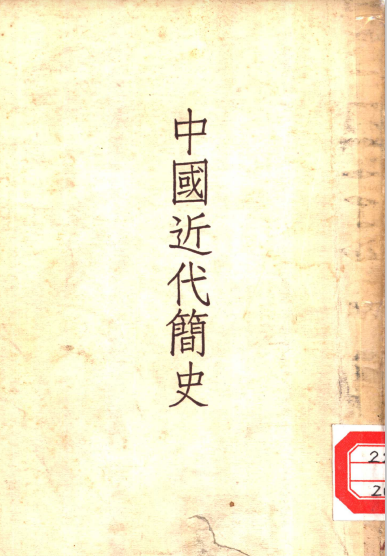 中國近代簡史
2
2